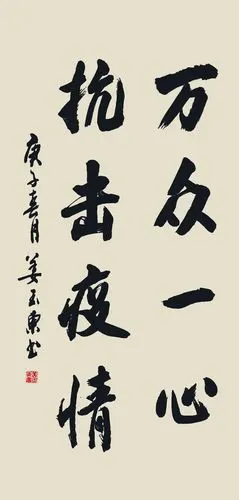 万众一心
抗击疫情
庚子喜月姜玉东书